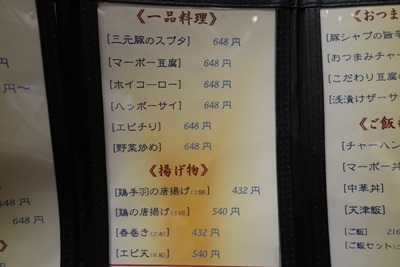 《一品料理》
[三元豚のスブタ] 648円
[マーボー豆腐] 648円
[ホイコーロー] 648円
[ハッポーサイ] 648円
[エビチリ] 648円
[野菜炒め] 648円
《揚げ物》
[鶏手羽の唐揚げ 432円
[鶏の唐揚げ 540円
[春巻き(2本) 432円
[エビ天 540円
円〜
648円
《おつま
[豚シャブの旨辛
[おつまみチャー
[こだわり豆腐の
[浅漬けザーサ
《ご飯
[チャーハン
[マーボー丼
[中華丼]
[天津飯]
[ご飯] 216
[ご飯セット